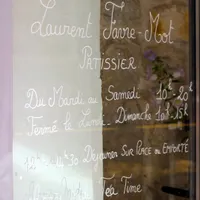 Laurent Favre-Mot
PÂTISSIER
Du Mardi au Samedi 10h-20h
Fermé le Lundi - Dimanche 10h-15h
14h30 Déjeuner SUR PLACE ou EMPORTÉ
Tea Time